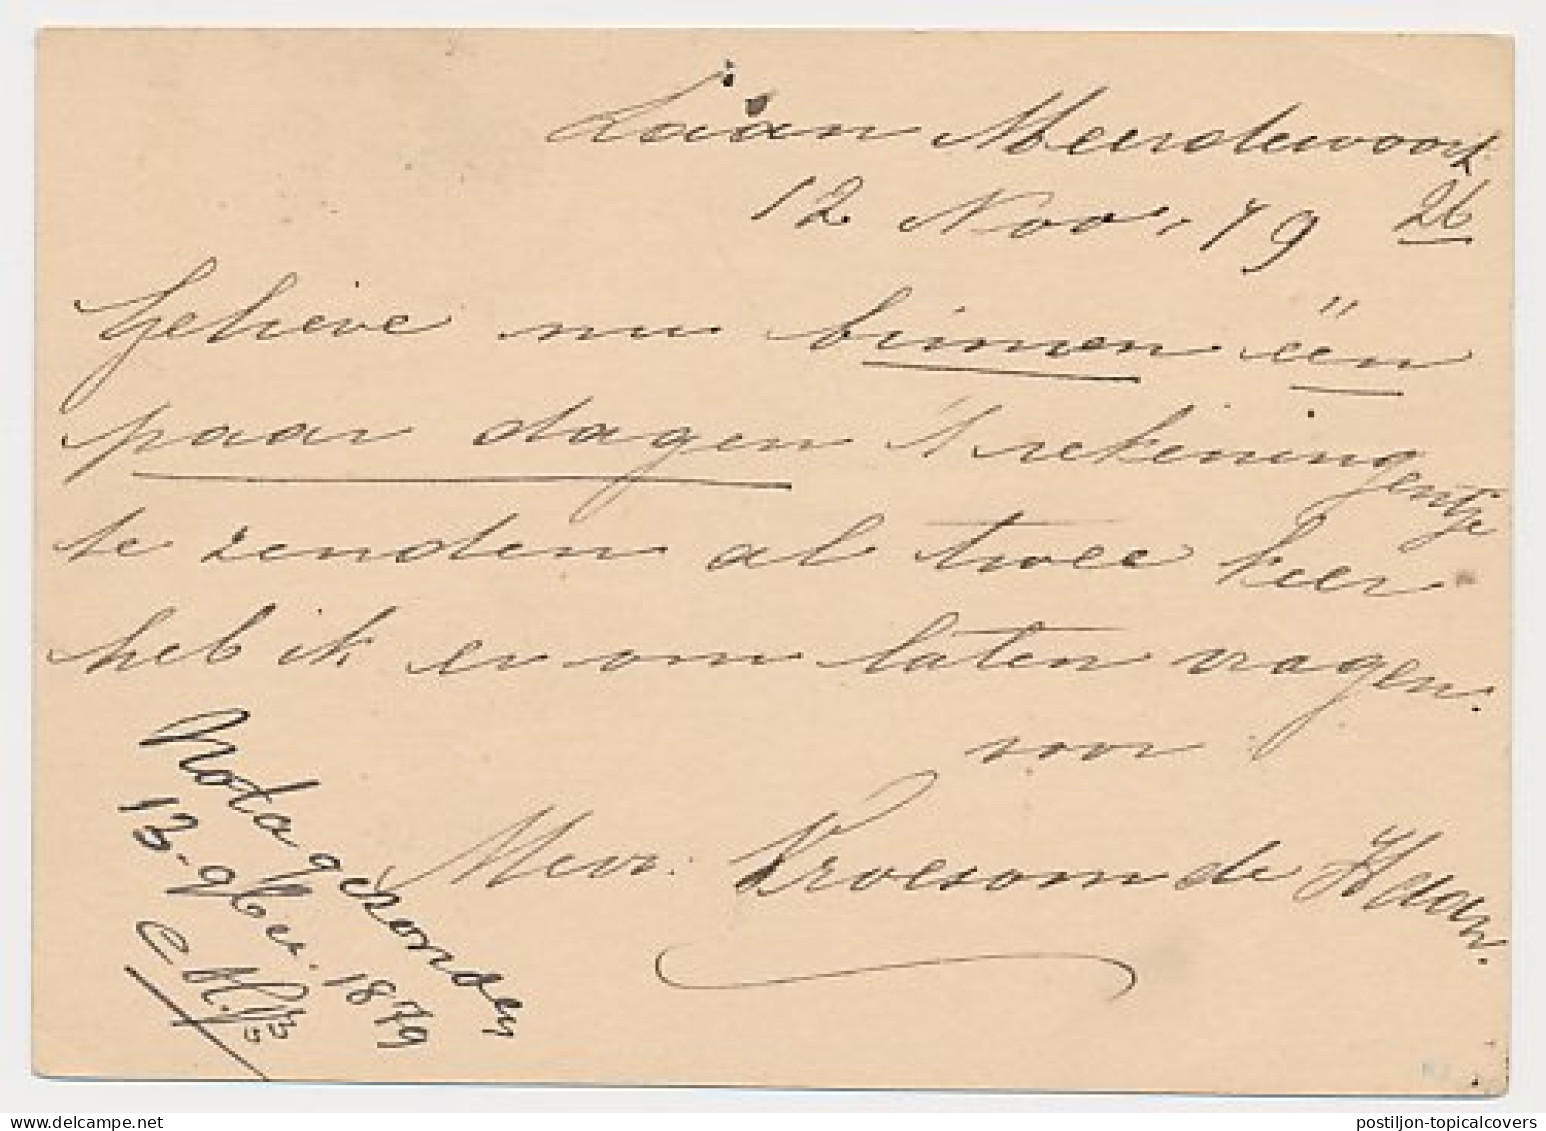 Laan Meerdewoort
12 Nov. 79 26
Gelieve nu binnen één
paar dagen 't rekeningentje
te zenden al twee keer
heb ik er om laten vragen.
voor
Mevr. Kroesom de Haan.
Nota gezonden
13-9ber. 1879
postiljon-topicalcovers